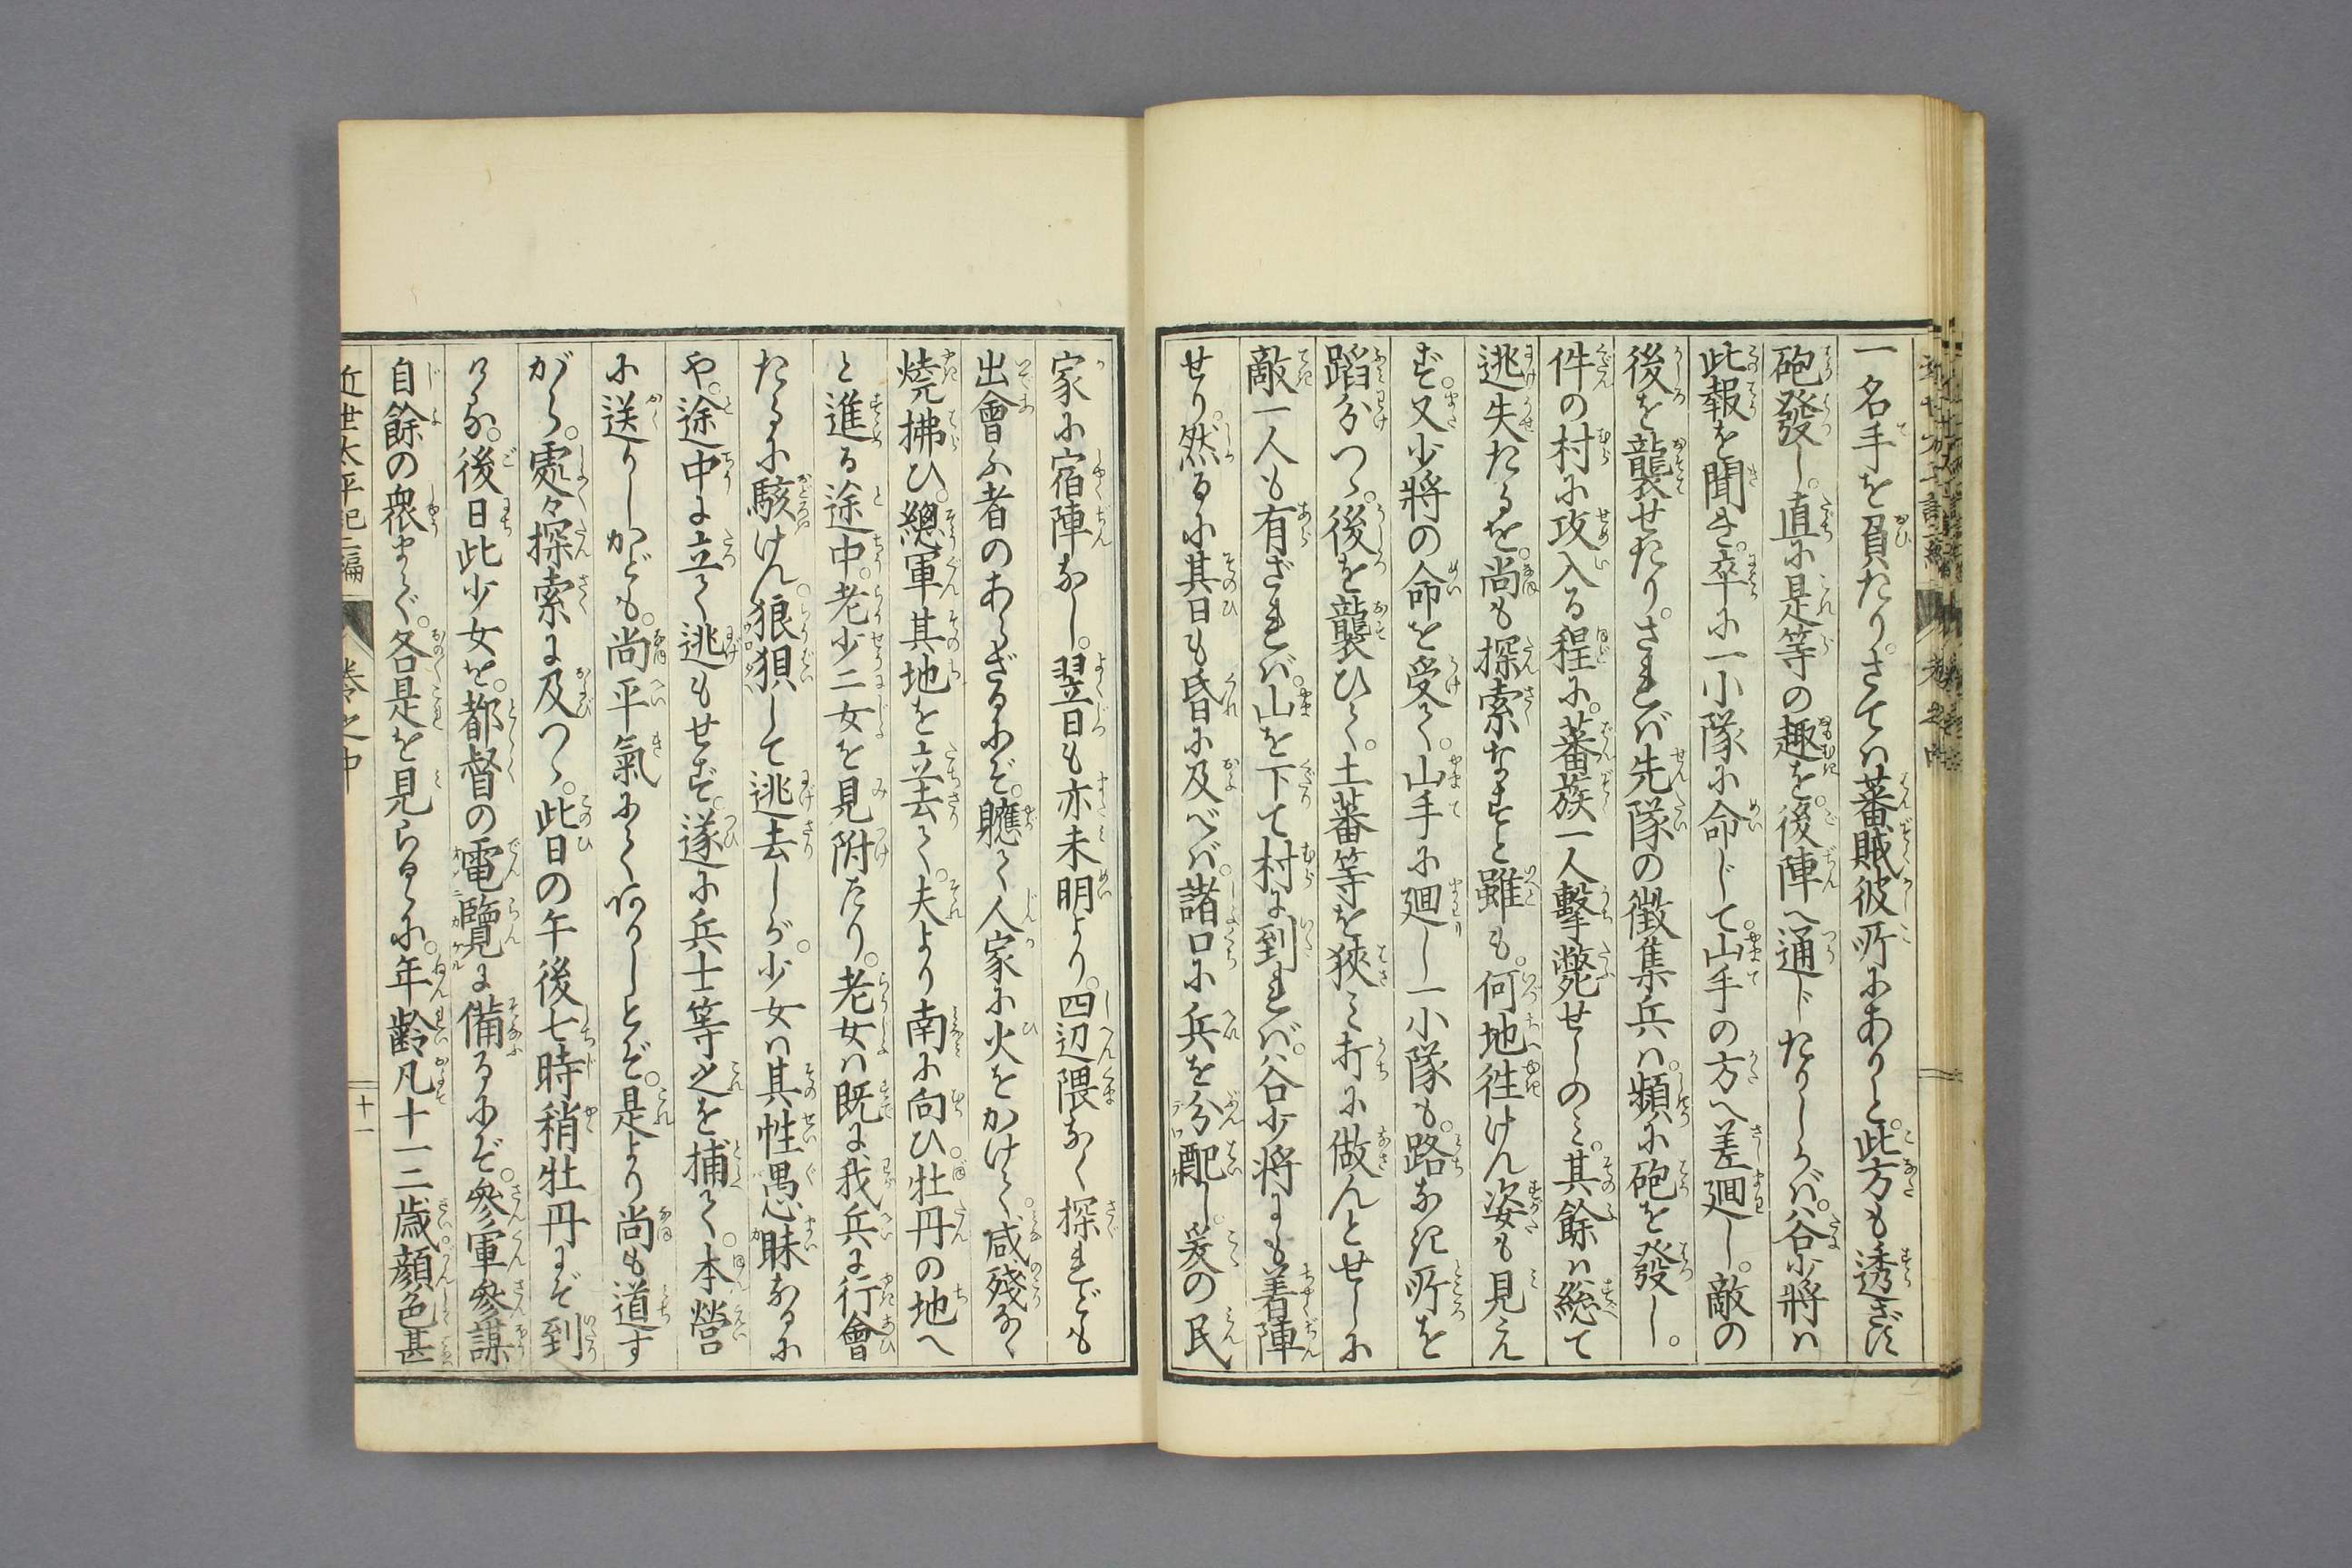 一名手を負たり。さてハ蕃賊彼所にありと。此方も透さず
砲發し。直に是等の趣を。後陣へ通じたりしかバ。谷少將ハ
此報を聞き。卒に一小隊に命じて。山手の方へ差廻し。敵の
後を襲せたり。されバ先隊の徴集兵ハ。頻に砲を發し。
件の村に攻入る程に。蕃族一人擊斃せしのミ。其餘ハ総て
逃失たるを。尚も探索なすと雖も。何地徃けん姿も見え
ず。又少將の命を受て。山手に廻し一小隊も。路なき所を
蹈分つゝ。後を襲ひて。土蕃等を狹ミ打に做んとせしに
敵一人も有ざれバ。山を下て村に到れバ。谷少将にも着陣
せり。然るに其日も昏に及べバ。諸口に兵を分配し。爰の民
家に宿陣なし。翌日も亦未明より。四辺隈なく探れども
出會ふ者のあらざるにぞ。軈て人家に火をかけて。咸殘なく
燒拂ひ。總軍其地を立去て。夫より南に向ひ。牡丹の地へ
と進る途中。老少二女を見附たり。老女ハ既に我兵に行會
たるに駭けん。狼狽して逃去しが。少女ハ其性愚昧なるに
や。途中に立て逃もせず。遂に兵士等之を捕て。本營
に送りしかども。尚平氣にてありしとぞ。是より尚も道す
がら。處々探索に及びつゝ。此日の午後七時稍牡丹にぞ到
りける。後日此少女を。都督の電覽に備るにぞ。參軍參謀
自餘の衆まで。各是を見らるゝに。年齡凡十一二歳顔色甚
近世太平記二編 卷之中 十一